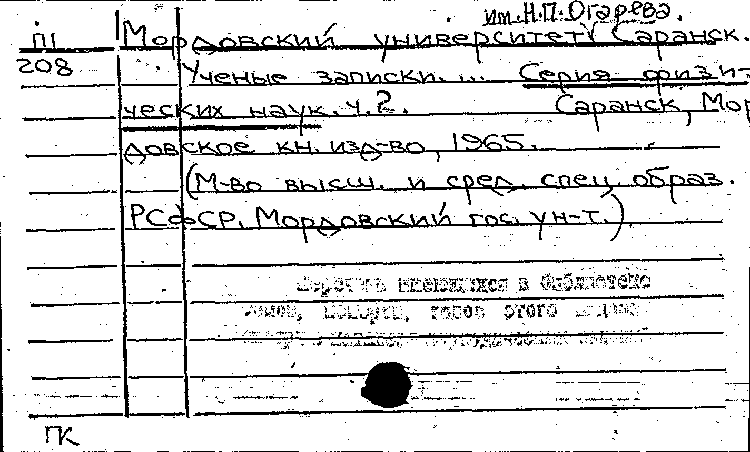 им. Н.П. Огарева.
П1 Мордовский университет Саранск.
208 Ученые записки. ... Серия физи-
ческих наук. ч.2. Саранск, Мор
довское кн. изд-во, 1965.
(М-во высш. и сред. спец. образ.
РСФСР. Мордовский гос. ун-т.)
имеющихся в библиотеке
томов, годов этого
ПК